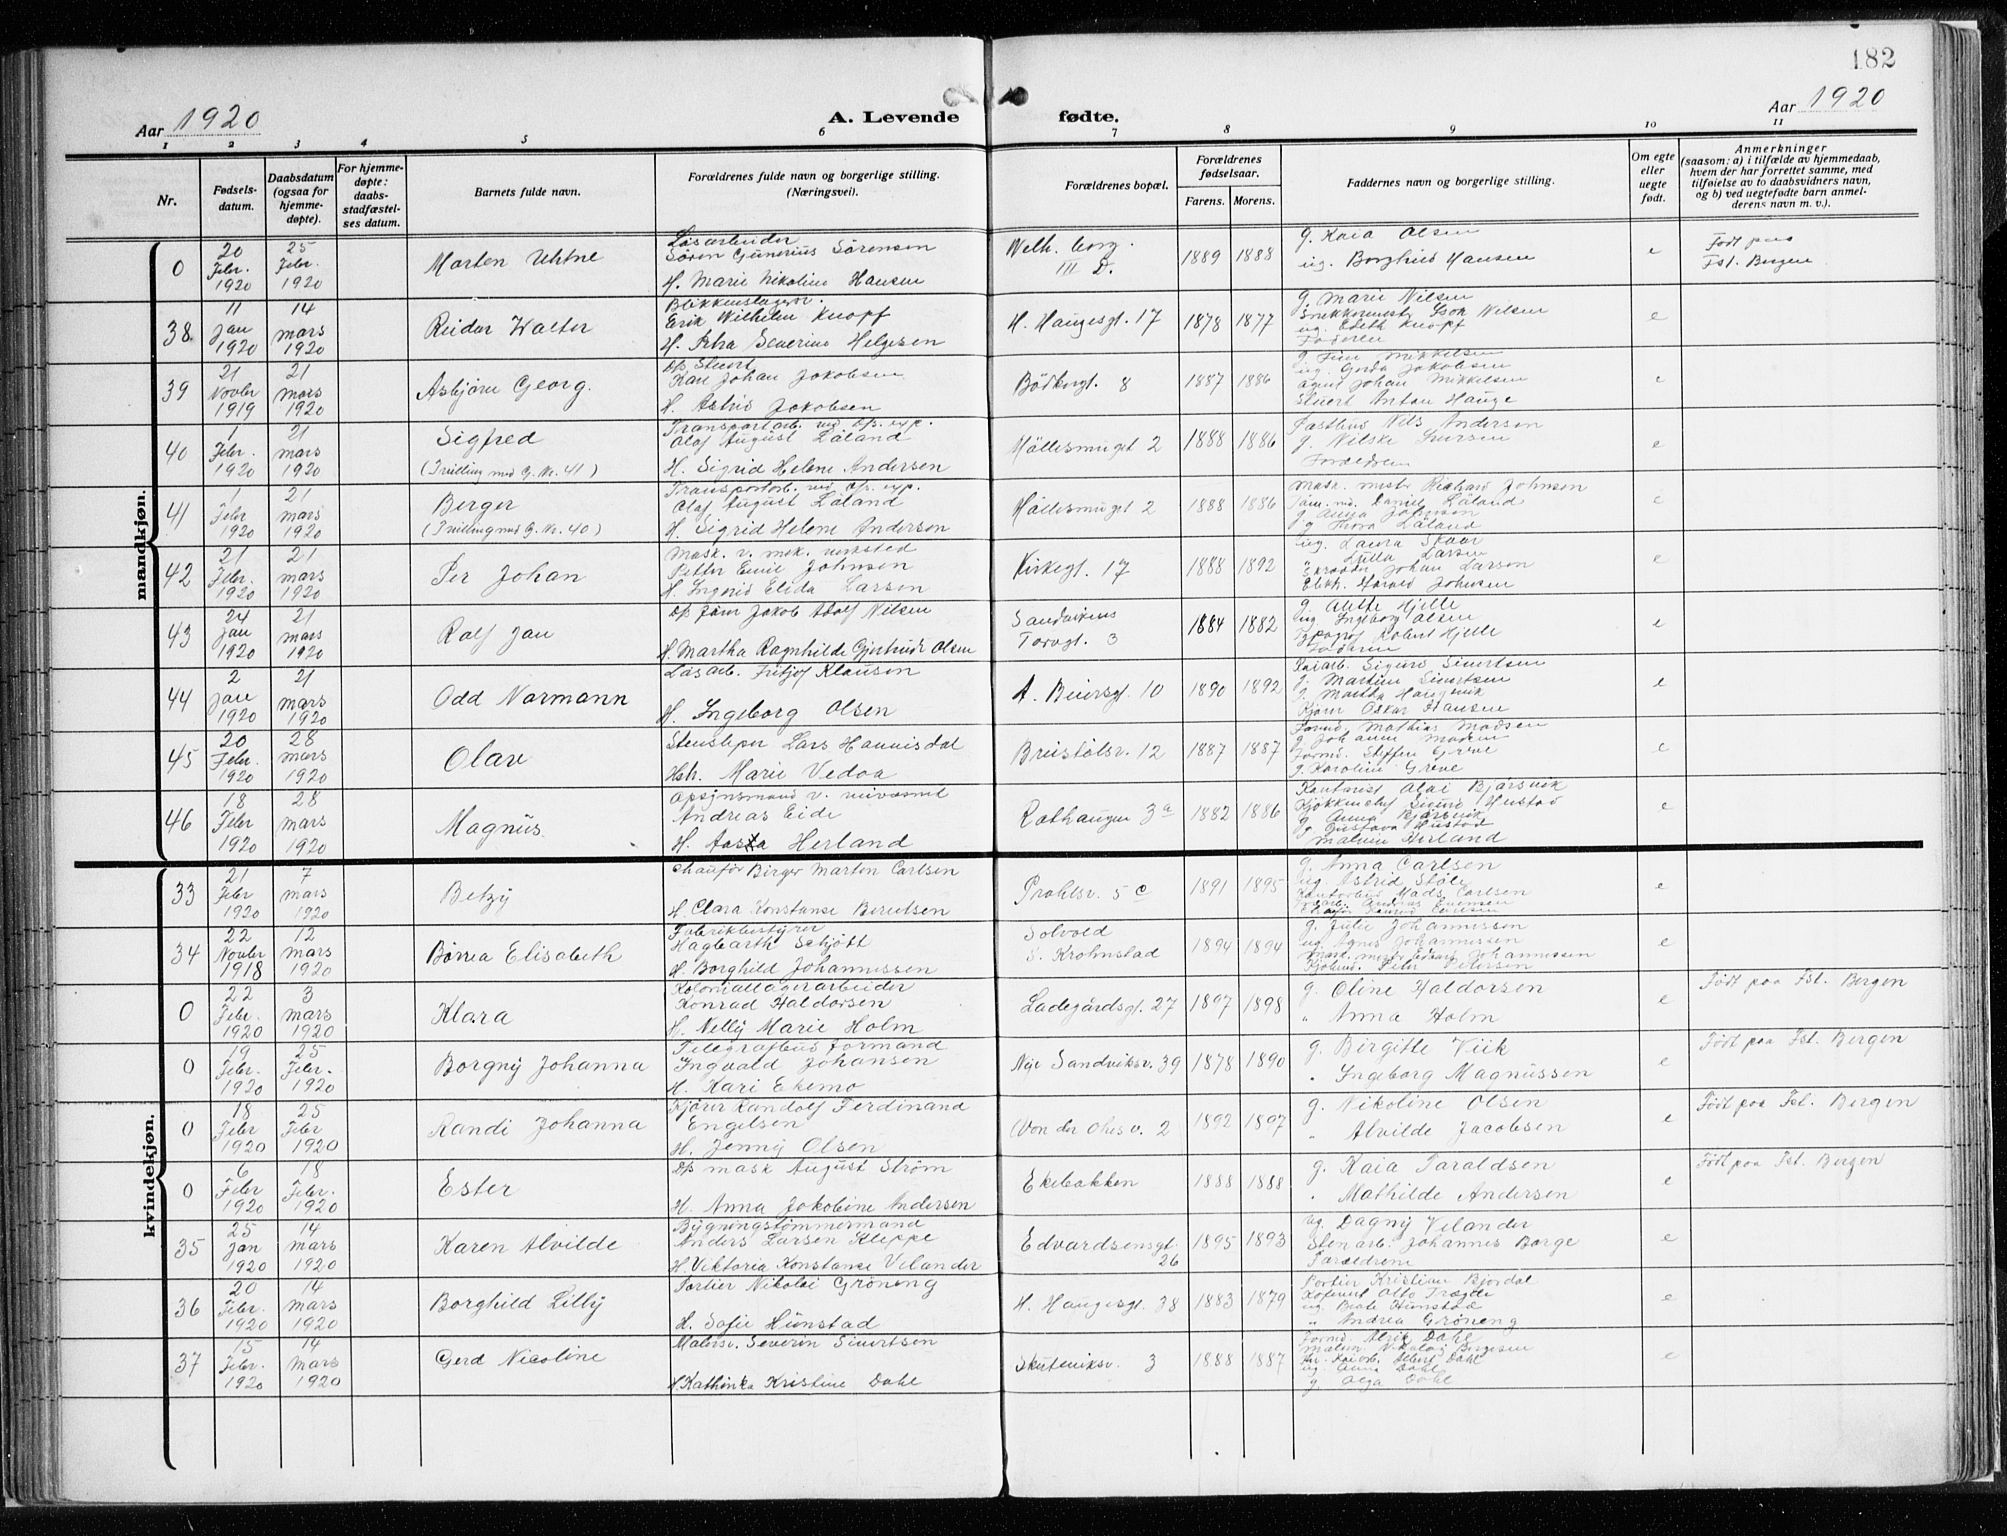 182
Aar 1920
A. Levende fødte.
Aar 1920
1 2 3 4 5 6 7 8 9 10 11
Nr.
Fødsels-
datum.
Daabsdatum
(ogsaa for
hjemme-
døpte).
For hjemme-
døpte:
daabs-
stadfæstel-
ses datum.
Barnets fulde navn.
Forældrenes fulde navn og borgerlige stilling.
(Næringsveil).
Forældrenes bopæl.
Forældrenes
fødselsaar.
Farens. Morens.
Faddernes navn og borgerlige stilling.
Om egte
eller
uegte
født.
Anmerkninger
(saasom: a) i tilfælde av hjemmedaab,
hvem der har forrettet samme, med
tilføielse av to daabsvidners navn,
og b) ved uegtefødte barn anmel-
derens navn m. v.).
mandkjøn.
0
20 Febr. 1920
25 Febr. 1920
Morten
Løsarbeider
Søren Gunerius Sørensen
H. Marie Nikoline Hansen
Welh. borg.
III D.
1889 1888
g. Kaia Olsen
ug. Borghild Hansen
e
Født paa
Fst. Bergen
38
11 Jan 1920
14 mars 1920
Reidar Walter
Blikkenslager
Erik Wilhelm Knopf
H. Severine Helgesen
H. Haugesgt. 17
1878 1877
g. Marie Nilsen
ug. Edith Knopf
Faderen
e
39
21 Novbr 1919
21 mars 1920
Asbjørn Georg.
D/s Stuert
Karl Johan Jakobsen
H. Astrid Jakobsen
Bødkergt. 8
1887 1886
ug. Gerda Jakobsen
agent Johan Mikkelsen
Stuert Anton Hauge
e
40
1 Febr. 1920
21 mars 1920
Sigfred
(Tvilling med G. Nr. 41)
Transportarb. ved
Olaf August Låland
H. Sigrid Helene Andersen
Møllesmuget 2
1888 1886
Nils Andersen
g.
Forældrene
e
41
1 Febr 1920
21 mars 1920
Berger
(Tvilling med G. Nr. 40)
Transportarb. ved
Olaf August Låland
H. Sigrid Helene Andersen
Møllesmuget 2
1888 1886
Mask. mester Richard Johnsen
Daniel Låland
g. Anna Johnsen
g. Thora Låland
e
42
21 Febr. 1920
21 mars 1920
Per Johan
Mask. v. mek. verksted
Petter Emil Johnsen
H. Ingrid Elida Larsen
Kirkegt. 17
1888 1892
ug. Laura Skaar
" Lulla Larsen
Skrædder Johan Larsen
Elekt. Harald Johnsen
e
43
24 Jan 1920
21 mars 1920
Rolf Jan
Jakob Adolf Nilsen
H. Martha Ragnhilde Gjertrude Olsen
Sandvikens
Torvgt. 3
1884 1882
g. Alette Hjelle
ug. Ingeborg Olsen
Typograf Robert Hjelle
Faderen
e
44
2 Jan 1920
21 mars 1920
Odd Normann
Løsarb. Fritjof Klausen
H. Ingeborg Olsen
A. Beiersgt. 10
1890 1892
Kaiarb. Sigurd Sivertsen
g. Martine Sivertsen
g. Martha
Kjører Oskar Hansen
e
45
20 Febr. 1920
28 mars 1920
Olav
Stensliper Lars Hannisdal
Hst. Marie Vedoa
Breistølsv. 12
1887 1887
Formd. Mathias Madsen
g. Johanne Madsen
Formd. Steffen Greve
g. Karoline Greve
e
46
18 Febr 1920
28 mars 1920
Magnus.
Opsynsmand v.
Andreas Eide
H. Aasta Herland
Rothaugen 3a
1882 1886
Kontorist Olai Bjørsvik
Kjøkkenchef Sigurd Hustad
g. Anna Bjørsvik
g. Gustava Hustad
Herland
e
kvindekjøn.
33
21 Febr 1920
7 mars 1920
Betzy
Chauffør Birger Marton Carlsen
H. Clara Konstanse Berntsen
Prahlsv. 5 c
1891 1895
g. Anna Carlsen
ug. Astrid Støle
Kontorbud Mads Carlsen
e
34
22 Novbr 1918
12 Mars 1920
Børrea Elisabeth
Fabrikbestyrer
Hagbarth Schjøtt
H. Borghild Johannessen
Solvold
S. Krohnstad
1894 1894
g. Julie Johannessen
ug. Agnes Johannessen
Mask. mester Edvard Johannessen
Peter Petersen
e
0
22 Febr. 1920
3 mars 1920
Klara
Koloniallagerarbeider
Konrad Haldorsen
H. Nelly Marie Holm
Ladegårdsgt. 27
1897 1898
g. Oline Haldorsen
" Anna Holm
e
Født paa Fst. Bergen
0
19 Febr. 1920
25 Febr. 1920
Borgny Johanna
Telegrafbud formand
Ingvald Johansen
H. Kari Ekemo
Nye Sandviksv. 39
1878 1890
g. Birgitte Viik
" Ingeborg Magnussen
e
Født paa Fst. Bergen
0
18 Febr 1920
25 Febr 1920
Randi Johanna
Kjører Randolf Ferdinand
Engelsen
H. Jenny Olsen
Von der Ohes v. 2
1892 1897
g. Nikoline Olsen
" Alvilde Jacobsen
e
Født paa Fst. Bergen
0
6 Febr 1920
18 Febr. 1920
Ester
D/s mask August Strøm
H. Anna Jakobine Andersen
Ekebakken
1888 1888
g. Kaia Taraldsen
" Mathilde Andersen
e
Født paa Fst. Bergen
35
25 Jan 1920
14 Mars 1920
Karen Alvilde
Bygningstømmermand
Anders Larsen Kleppe
H. Viktoria Konstanse Velander
Edvardsensgt.
26
1895 1893
ug. Dagny Velander
Stenarb. Johannes Borge
Forældrene
e
36
20 Febr. 1920
14 Mars 1920
Borghild Lilly
Portier Nikolai Grøneng
H. Sofie Hunstad
H. Haugesgt. 38
1883 1879
Portier Kristian Bjordal
Otto Trægde
ug. Beate Hunstad
" Andrea Grøneng
e
37
15 Febr. 1920
14 Mars 1920
Gerd Nicoline
Malersv. Severin Sivertsen
H. Kathinka Kristine Dahl
Skuteviksv. 3
1888 1887
Formd. Alrik Dahl
Nikolai Børgesen
Albert Dahl
ug. Anna Dahl
g. Olga Dahl
e